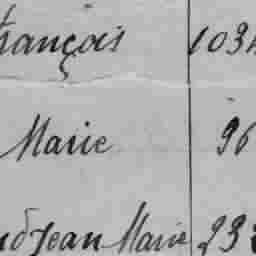 François 103
Marie 96
Jean Marie 23